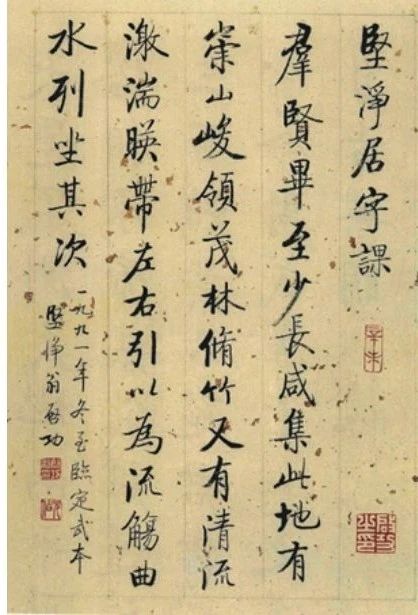 堅淨居字課
羣賢畢至少長咸集此地有
崇山峻領茂林脩竹又有清流
激湍暎帶左右引以為流觴曲
水列坐其次
一九九一年冬至臨定武本
堅淨翁啟功
辛未